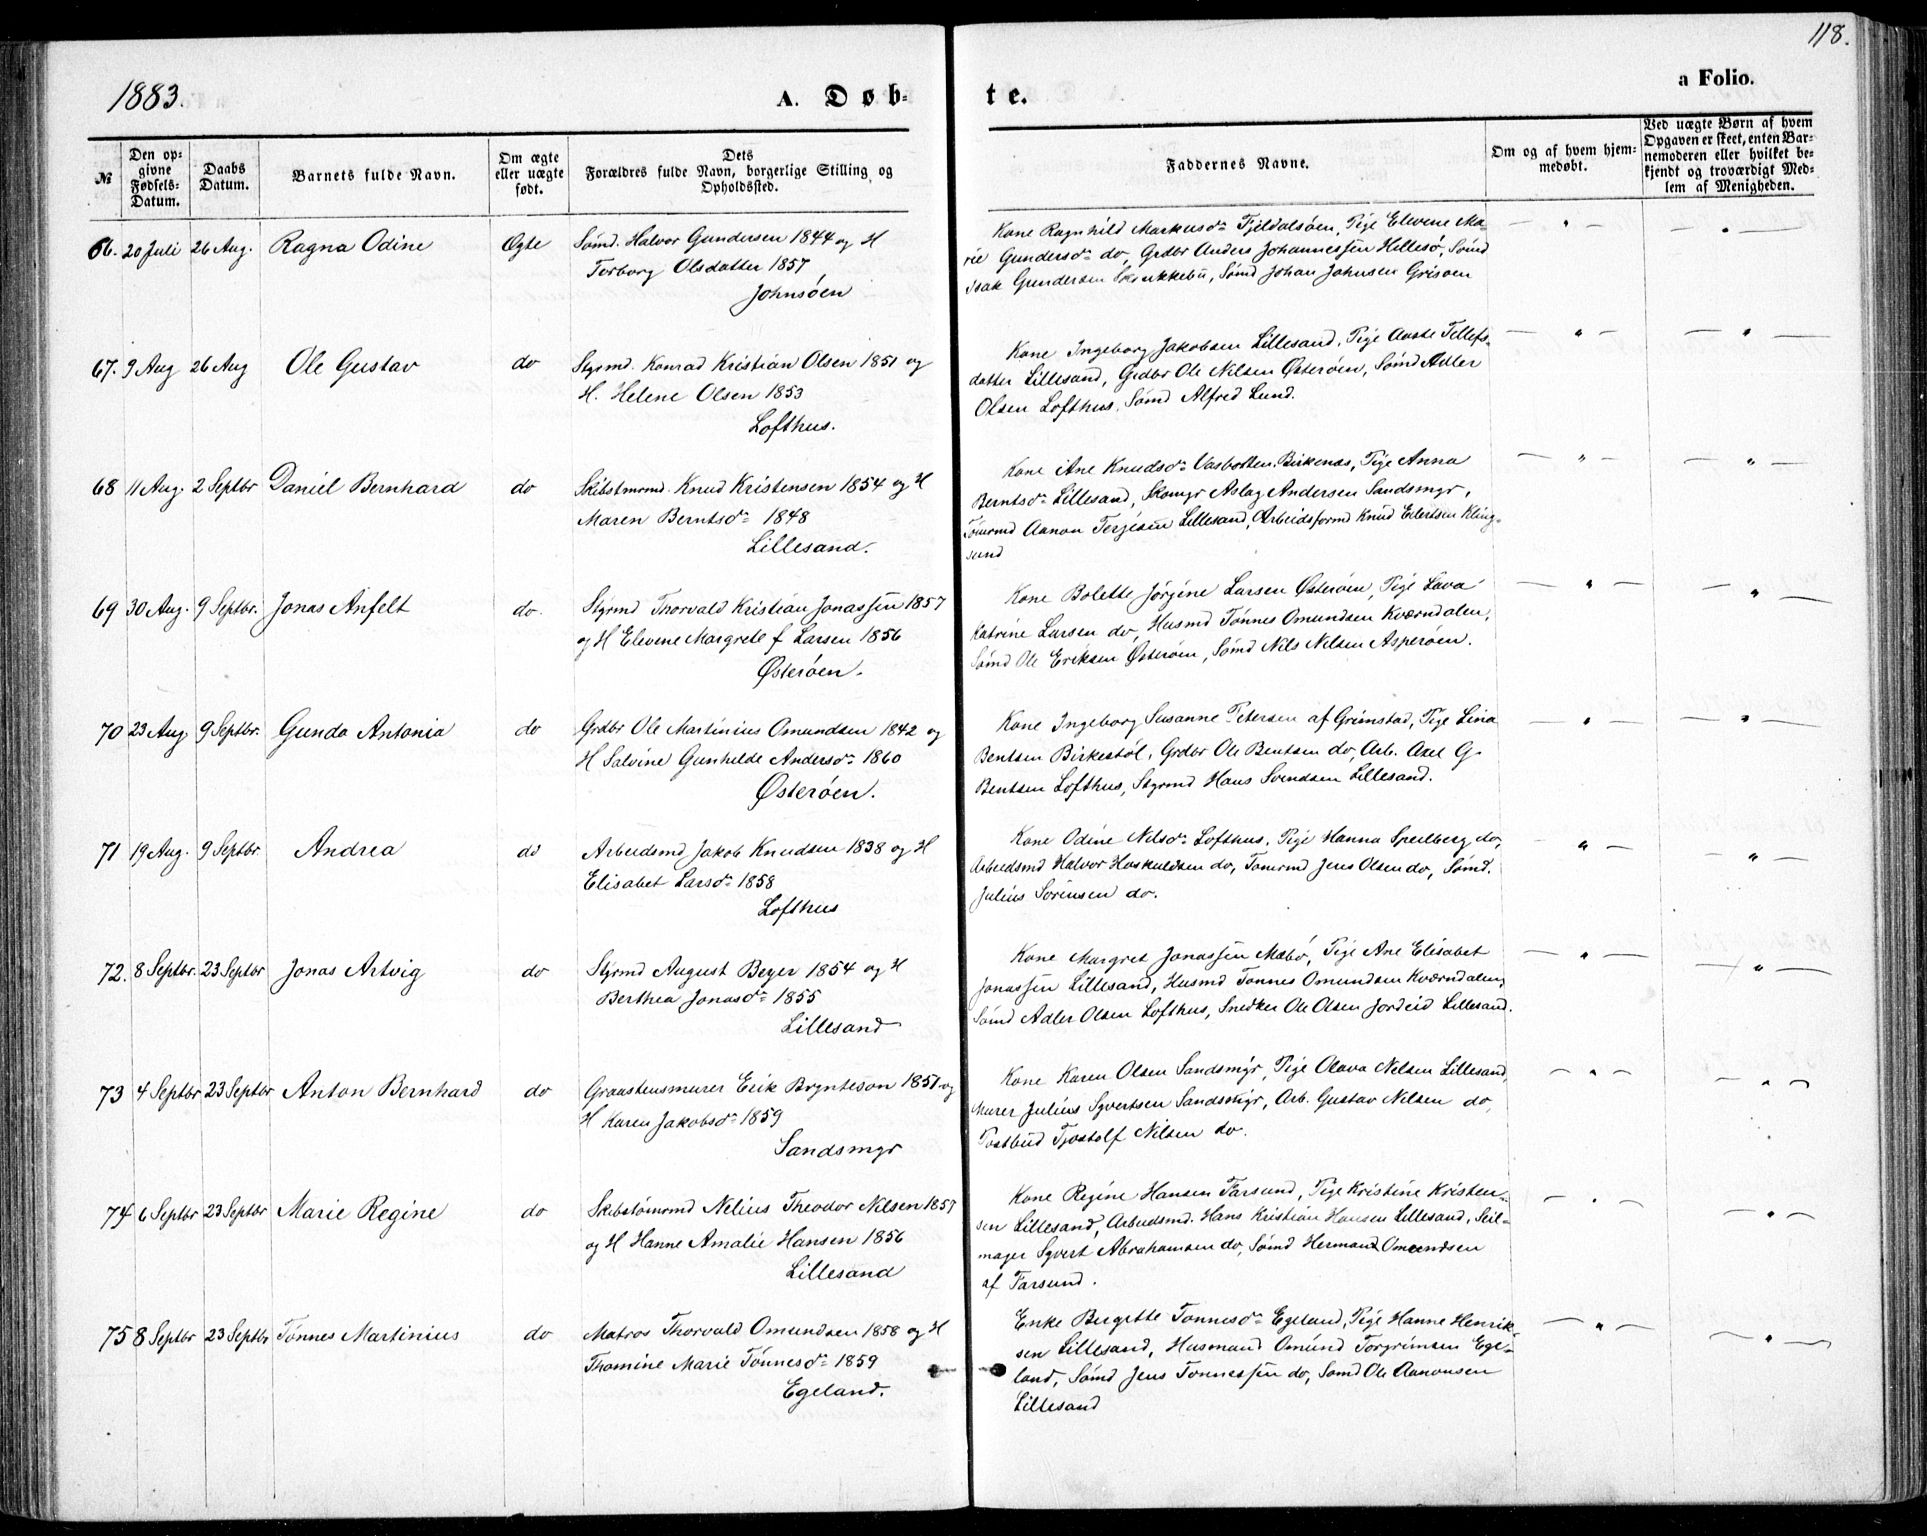 118.
1883.
A. Døb-
te.
a Folio.
№
Den op-
givne
Fødsels-
Datum.
Daabs
Datum.
Barnets fulde Navn.
Om ægte
eller uægte
født.
Dets
Forældres fulde Navn, borgerlige Stilling og
Opholdssted.
Faddernes Navne.
Om og af hvem hjem-
medøbt.
Ved uægte Børn af hvem
Opgaven er skeet, enten Bar-
nemoderen eller hvilket be-
kjendt og troværdigt Med-
lem af Menigheden.
66. 20 Juli 26 Aug. Ragna Odine Ægte Sømd. Halvor Gundersen 1844 og H
Torborg Olsdatter 1857
Johnsøen
Kone Ragnhild Markusd: Fjeldalsøen, Pige Elevene Ma-
rie Gundersd: do, Grdbr Anders Johannessen Hellesø, Sømd
Isak Gundersen, Sømd Johan Johnsen Grisøen
67. 9 Aug 26 Aug Ole Gustav do Styrmd. Konrad Kristian Olsen 1851 og
H. Helene Olsen 1853
Lofthus.
Kone Ingeborg Jakobsen Lillesand, Pige Aaste Tellefs-
datter Lillesand, Grdbr Ole Nilsen Østerøen, Sømd Adler
Olsen Lofthus, Sømd Alfred Lund.
68 11 Aug. 2 Septbr Daniel Bernhard do Skibstmrmd. Knud Kristensen 1854 og H
Maren Berntsd: 1848
Lillesand.
Kone Ane Knudsd: Vasbotten, Birkenæs, Pige Anna
Berntsd: Lillesand, Skomgr Aslag Andersen Sandsmgr,
Tømrmd Aanon Terjesen Lillesand, Arbeidsformd Knud Eilertsen Kling-
sund
69 30 Aug. 9 Septbr. Jonas Anfelt do. Styrmd Thorvald Kristian Jonassen 1857
og H Elevene Margrete f Larsen 1856
Østerøen.
Kone Bolette Jørgine Larsen Østerøen, Pige Lava
Katrine Larsen do, Husmd Tønnes Omundsen Kværndalen,
Sømd Ole Eriksen Østerøen, Sømd Nils Nilsen Asperøen.
70 23 Aug 9 Septbr. Gunda Antonia do Grdbr Ole Martinius Omundsen 1842 og
H Salvine Gunhilde Andersd: 1860
Østerøen.
Kone Ingeborg Susanne Petersen af Grimstad, Pige Lina
Bentsen Birkestøl, Grdbr Ole Bentsen do, Arb. Axel G.
Bentsen Lofthus, Styrmd Hans Svendsen Lillesand.
71 19 Aug. 9 Septbr. Andrea do Arbeidsmd Jakob Knudsen 1838 og H
Elisabet Larsd: 1858
Lofthus
Kone Odine Nilsd: Lofthus, Pige Hanna Speilberg do,
Arbeidsmd Halvor Hoskuldsen do, Tømrmd Jens Olsen do, Sømd.
Julius Sørensen do.
72. 8 Septbr. 23 Septbr Jonas Artvig do Styrmd August Beyer 1854 og H
Berthea Jonasd: 1855
Lillesand
Kone Margret Jonassen Mæbø, Pige Ane Elisabet
Jonassen Lillesand, Husmd Tønnes Omundsen Kværndalen,
Sømd Adler Olsen Lofthus, Snedker Ole Olsen Jordeid Lillesand.
73 4 Septbr 23 Septbr Anton Bernhard do Graastensmurer Erik Brynteson 1851 og
H Karen Jakobsd: 1859
Sandsmgr
Kone Karen Olsen Sandsmgr, Pige Olava Nilsen Lillesand,
Murer Julius Syvertsen Sandsmgr, Arb. Gustav Nilsen do,
Postbud Tjostolf Nilsen do.
74 6 Septbr 23 Septbr Marie Regine do Skibstømrmd Nelius Theodor Nilsen 1857
og H Hanne Amalie Hansen 1856
Lillesand
Kone Regine Hansen Farsund, Pige Kristine Kristen-
sen Lillesand, Arbeidsmd. Hans Kristian Hansen Lillesand, Seil-
mager Syvert Abrahamsen do, Sømd Herman Omundsen
af Farsund.
75 8 Septbr 23 Septbr Tønnes Martinius do Matros Thorvald Omundsen 1858 og H
Thomine Marie Tønnesd: 1859
Egeland.
Enke Birgitte Tønnesd: Egeland, Pige Hanne Henrik-
sen Lillesand, Husmand Omund Torgrimsen Ege-
land, Sømd Jens Tønnessen do, Sømd Ole Aanonsen
Lillesand